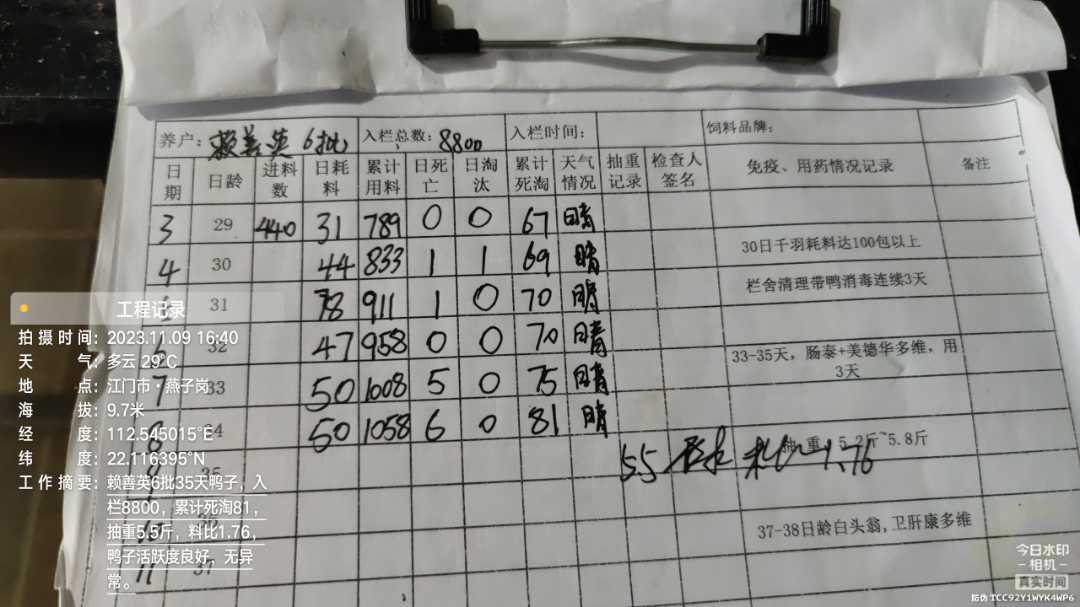 养户：赖善英 6批 入栏总数：8800 入栏时间： 饲料品牌：
日期 日龄 进料数 日耗料 累计用料 日死亡 日淘汰 累计死淘 天气情况 抽重记录 检查人签名 免疫、用药情况记录 备注
3 29 440 31 789 0 0 67 晴
30日千羽耗料达100包以上
4 30 44 833 1 1 69 晴
栏舍清理带鸭消毒连续3天
31 78 911 1 0 70 晴
32 47 958 0 0 70 晴
33-35天，肠泰+美德华多维，用
3天
7 33 50 1008 5 0 75 晴
8 34 50 1058 6 0 81 晴
抽重 5.2斤~5.8斤
5.5 料比 1.76
35
37-38日龄白头翁，卫肝康多维
11 37
工程记录
拍摄时间：2023.11.09 16:40
天 气：多云 29℃
地 点：江门市·燕子岗
海 拔：9.7米
经 度：112.545015°E
纬 度：22.116395°N
工作摘要：赖善英6批35天鸭子，入
栏8800，累计死淘81，
抽重5.5斤，料比1.76，
鸭子活跃度良好，无异
常。
今日水印
-相机-
真实时间
防伪 TCC92Y1WYK4WP6